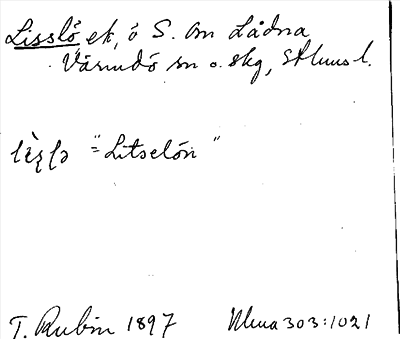 Lisslö ek, ö S. om Lådna
Värmdö sn o. skg, Sthlms l.
"Litselön"
T. Rubin 1897 Uma 303:1021